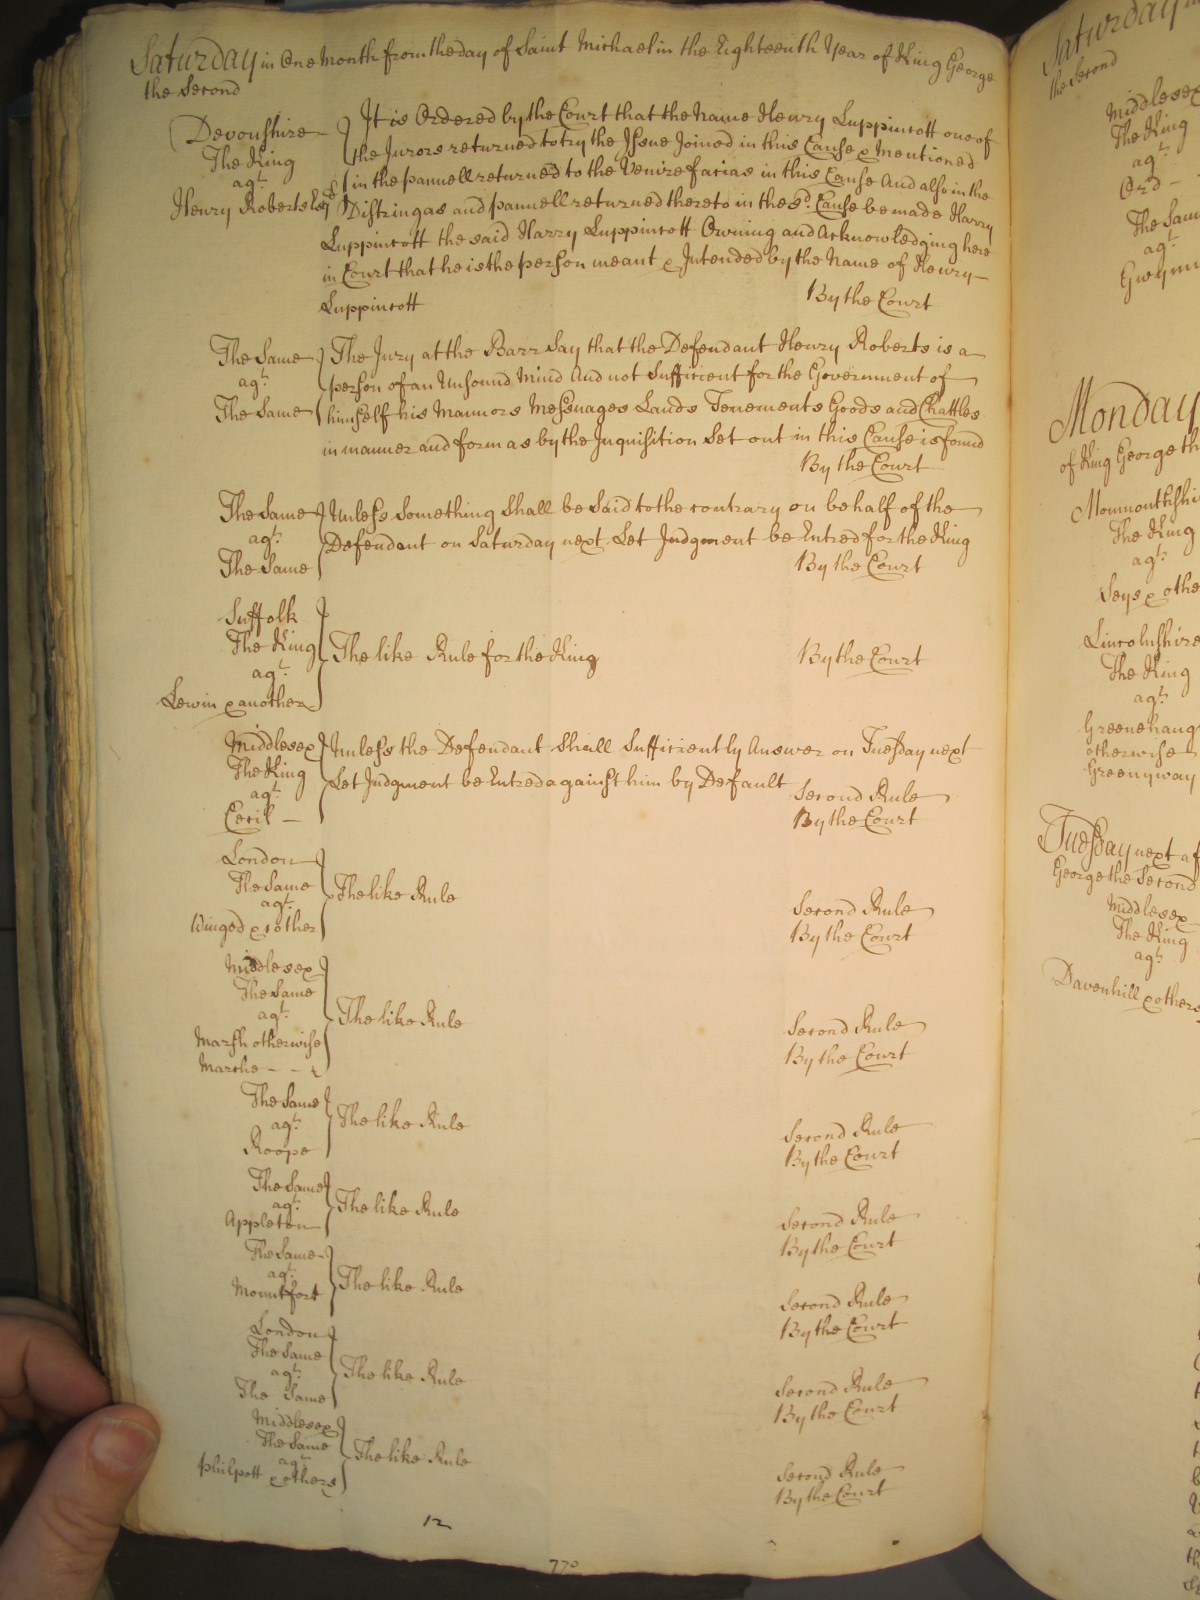 Saturday in One Month from the day of Saint Michael in the Eighteenth Year of King George
the Second
Devonshire
The King
agt.
Henry Roberts Esqr
It is Ordered by the Court that the Name Henry Luppincott one of
the Jurors returned to try the Issue Joined in this Cause & Mentioned
in the pannell returned to the Venire facias in this Cause And also in the
Distringas and pannell returned thereto in the sd. Cause be made Harry
Luppincott the said Harry Luppincott Owning and Acknowledging here
in Court that he is the person meant & Intended by the Name of Henry
Luppincott
By the Court
The Same
agt.
The Same
The Jury at the Barr Say that the Defendant Henry Roberts is a
person of an Unsound Mind And not Sufficient for the Government of
himself his Mannors Messuages Lands Tenements Goods and Chattles
in manner and form as by the Inquisition Set out in this Cause is found
By the Court
The Same
agt.
The Same
Unless Something Shall be Said to the contrary on behalf of the
Defendant on Saturday next Let Judgment be Entred for the King
By the Court
Suffolk
The King
agt.
Lewin & another
The like Rule for the King
By the Court
Middlesex
The King
agt.
Cecil —
Unless the Defendant Shall Sufficiently Answer on Tuesday next
Let Judgment be Entred against him by Default
Second Rule
By the Court
London
The Same
agt.
Winged & other
The like Rule
Second Rule
By the Court
Middlesex
The Same
agt.
Marsh otherwise
Marche - - -
The like Rule
Second Rule
By the Court
The Same
agt.
Roope
The like Rule
Second Rule
By the Court
The Same
agt.
Appleton
The like Rule
Second Rule
By the Court
The Same
agt.
Mountfort
The like Rule
Second Rule
By the Court
London
The Same
agt.
The Same
The like Rule
Second Rule
By the Court
Middlesex
The Same
agt.
Philpott & others
The like Rule
Second Rule
By the Court
12
770
Saturday
the Second
Middlesex
The King
agt.
Ord - -
The Same
agt.
Monday
of King George th
The King
agt.
Seys & othe
Lincolnshire
The King
agt.
otherwise
Greenyway
Tuesday next af
George the Second
Middlesex
The King
agt.
Davenhill & others